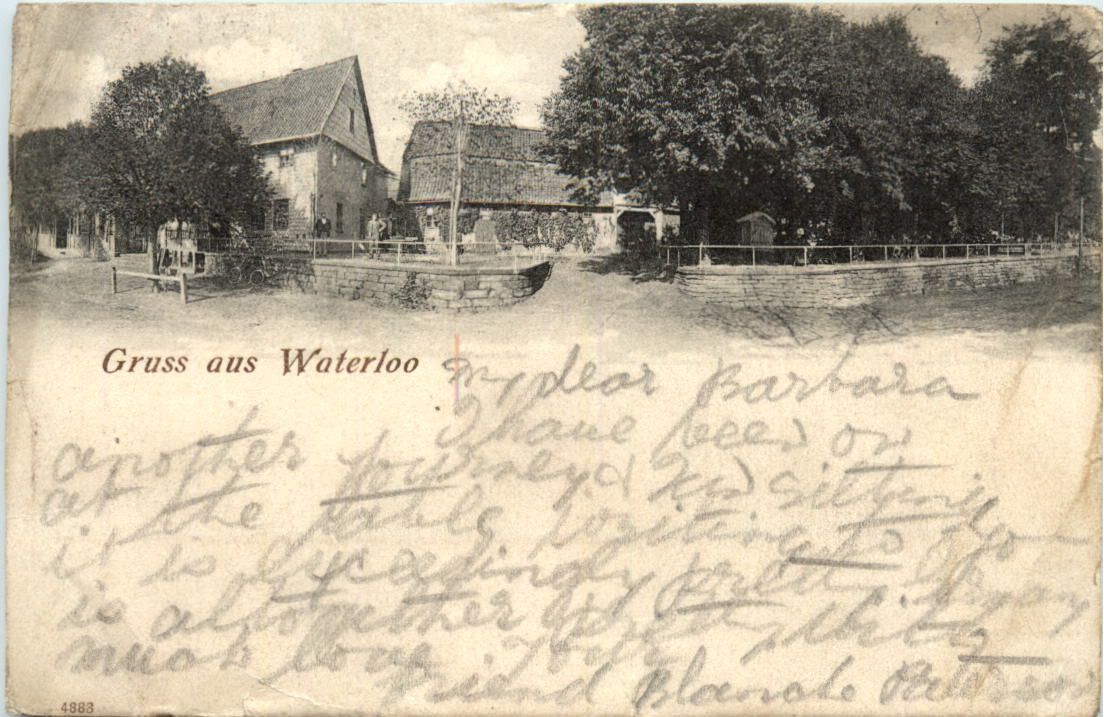 Gruss aus Waterloo
My dear Barbara
I have been on
another journey & Im sitting
at the table writing to you
it is exceedingly pretty
is altogether
much love your
friend Blanche Paterson
4883